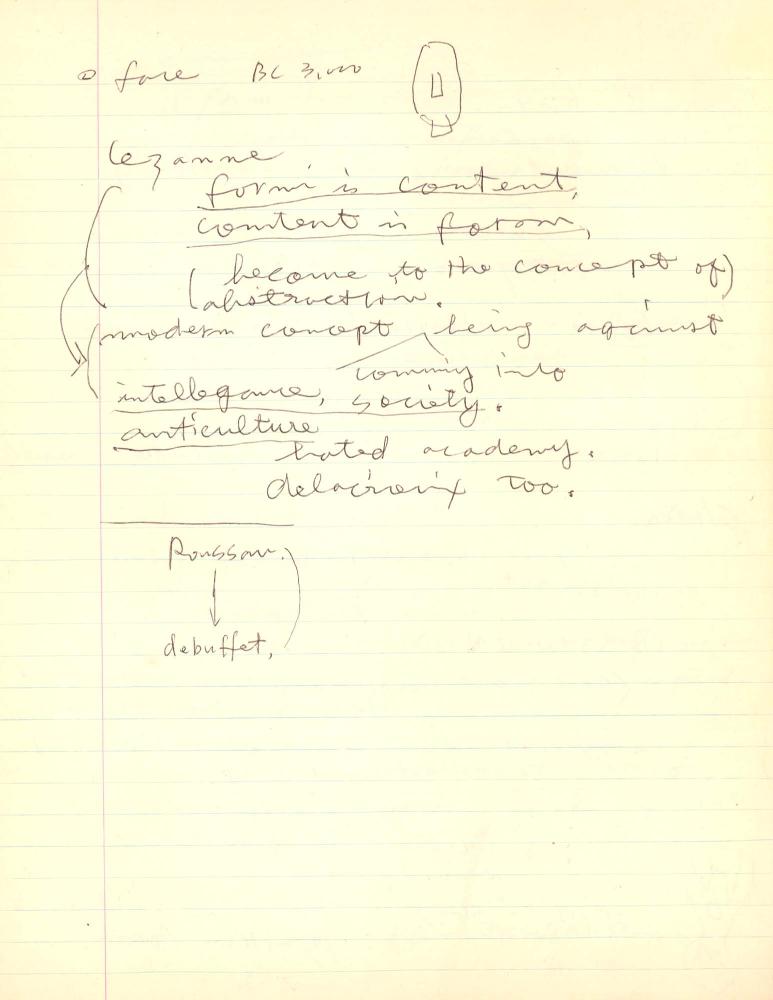 face BC 3,000
Cezanne
form is content,
content is form,
(become to the concept of)
abstraction.
modern concept being against
comming into
intellegance, society.
anticulture
hated academy.
delacroix too.
Roussau.
debuffet,